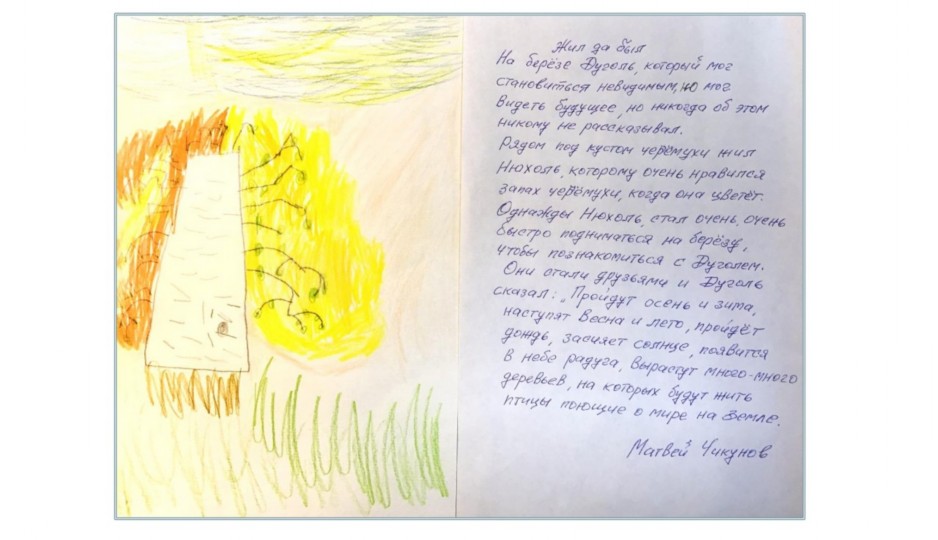 Жил да был
На берёзе Дуголь, который мог
становиться невидимым, но мог
видеть будущее, но никогда об этом
никому не рассказывал.
Рядом под кустом черёмухи жил
Нюхоль, которому очень нравился
запах черёмухи, когда она цветёт.
Однажды Нюхоль, стал очень, очень
быстро подниматься на берёзу,
чтобы познакомиться с Дуголем.
Они стали друзьями и Дуголь
сказал: „Пройдут осень и зима,
наступят Весна и лето, пройдёт
дождь, засияет солнце, появится
в небе радуга, вырастут много-много
деревьев, на которых будут жить
птицы поющие о мире на Земле.
Матвей Чикунов